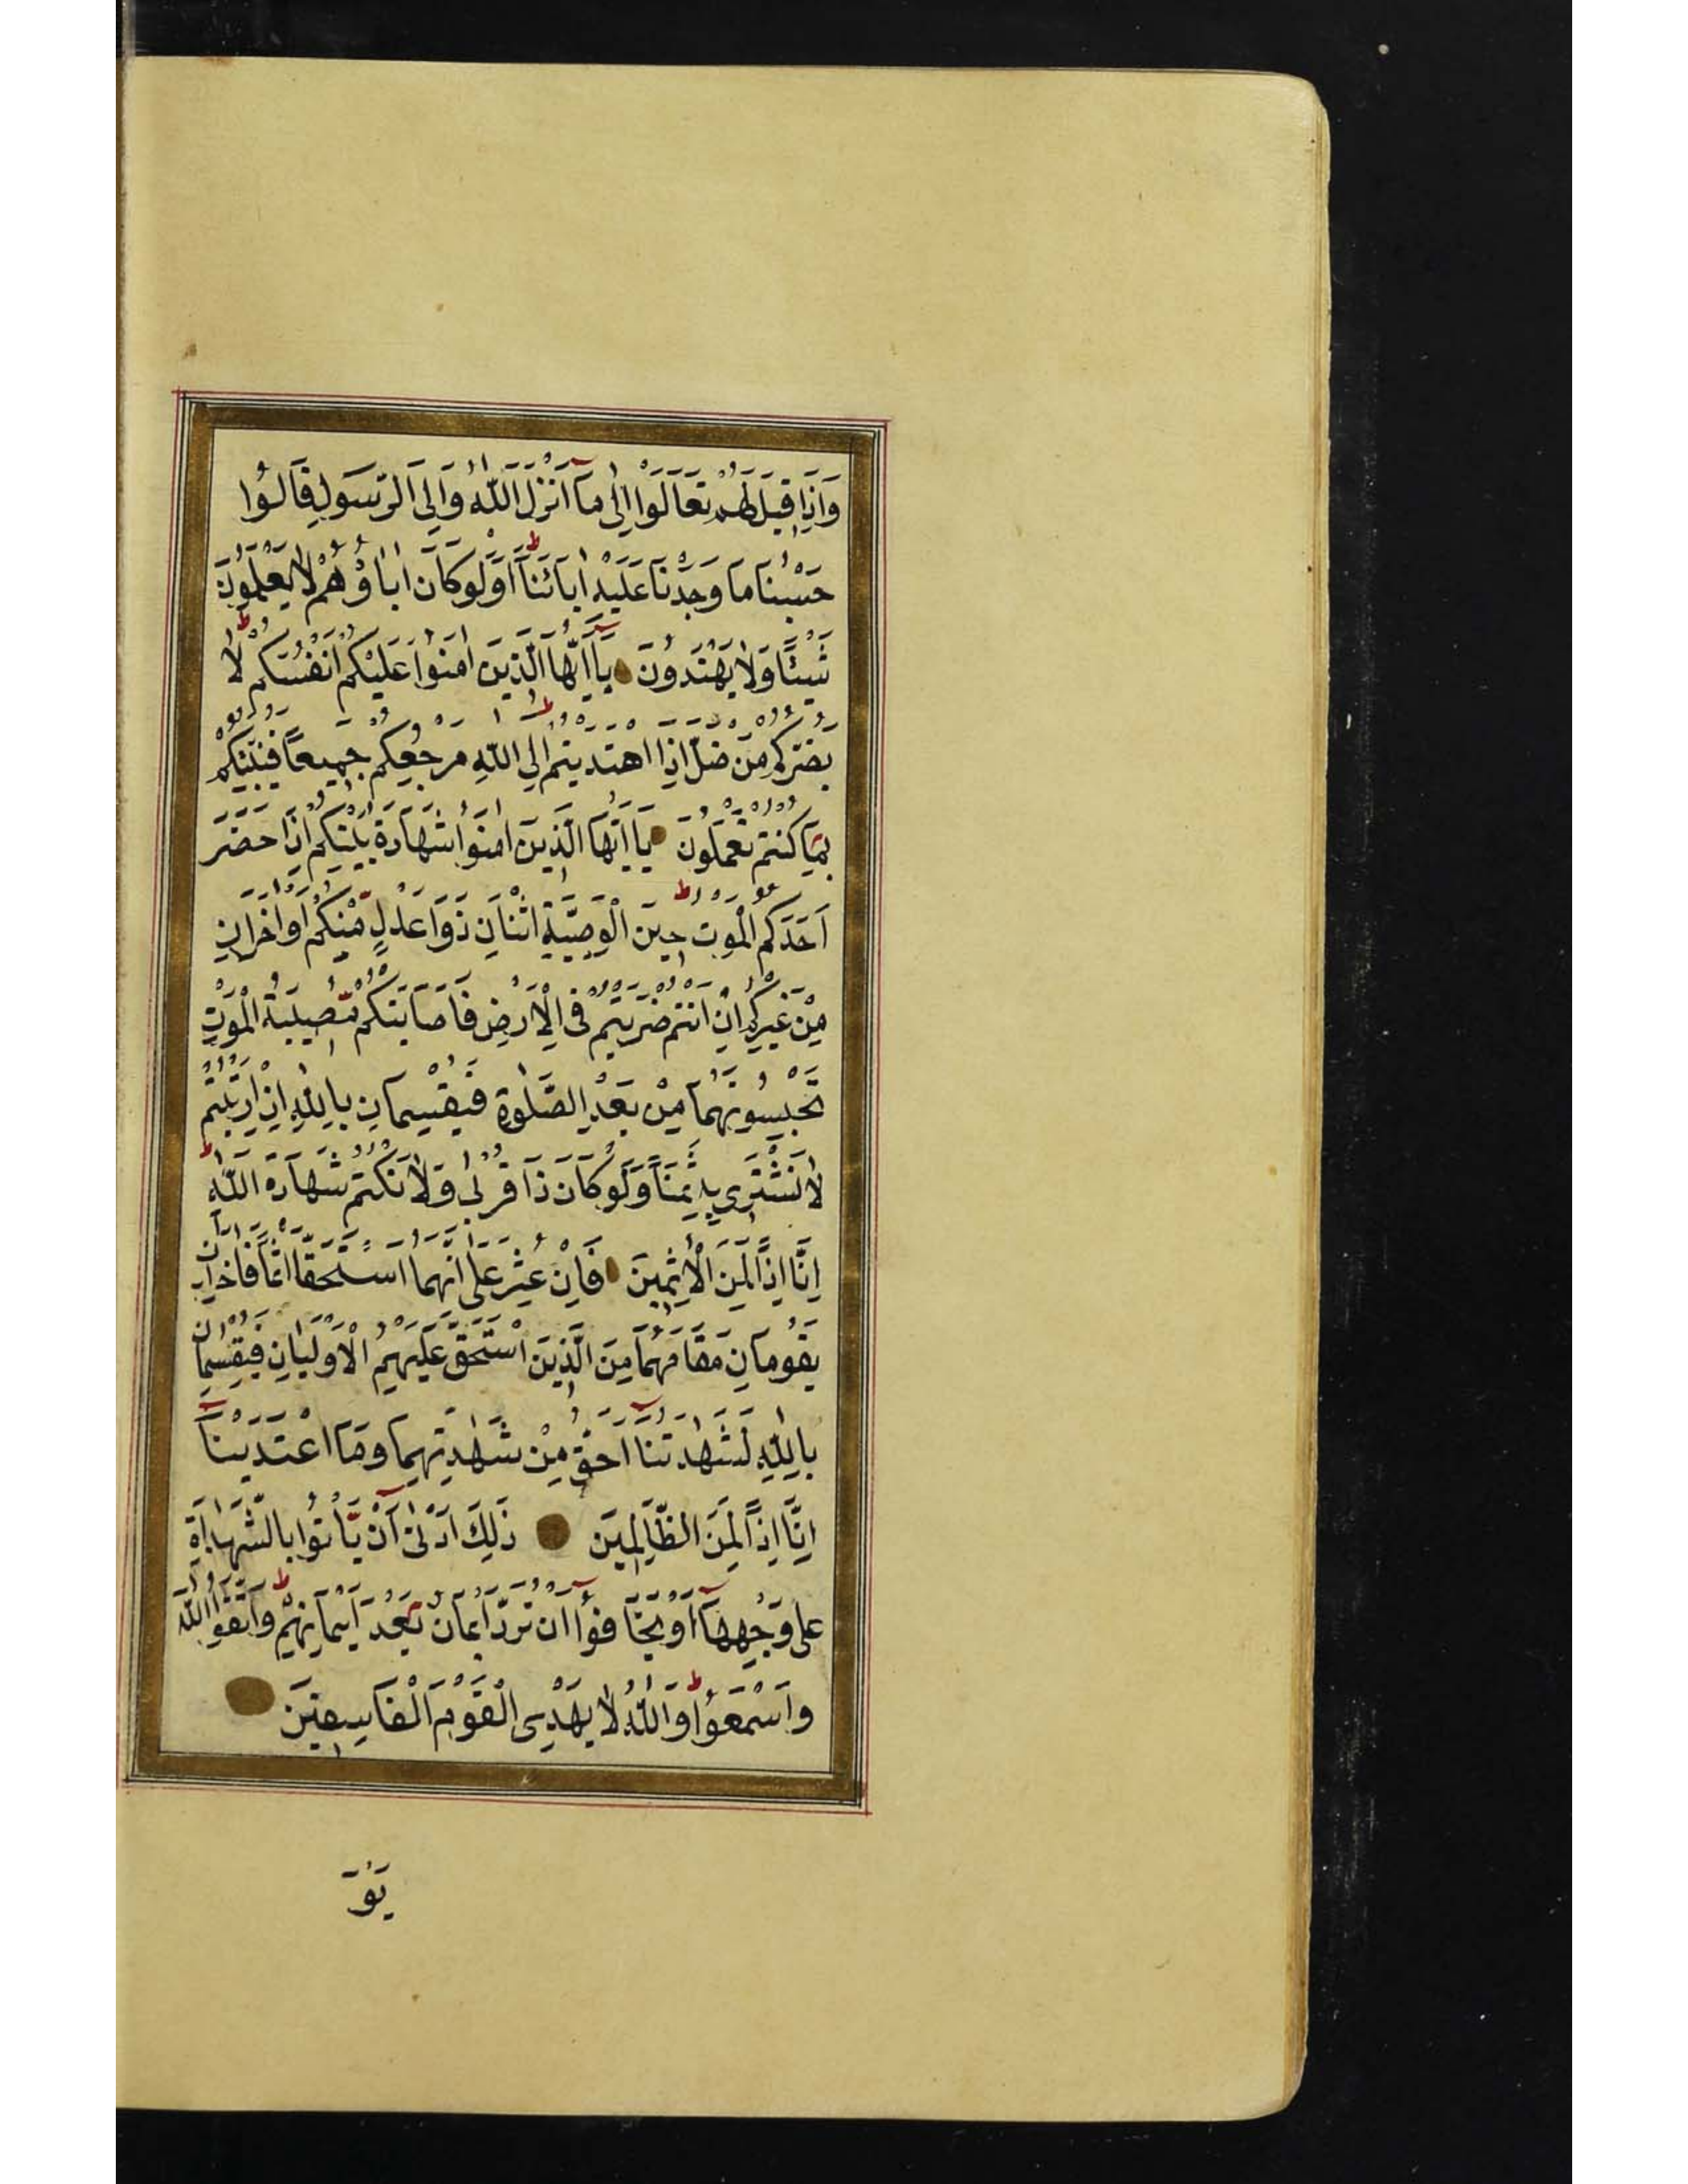 وَاِذَا قٖيلَ لَهُمْ تَعَالَوْا اِلٰى مَٓا اَنْزَلَ اللّٰهُ وَاِلَى الرَّسُولِ قَالُوا
حَسْبُنَا مَا وَجَدْنَا عَلَيْهِ اٰبَائَنَاؕ اَوَلَوْ كَانَ اٰبَاؤُهُمْ لَا يَعْلَمُونَ
شَيْئًا وَلَا يَهْتَدُونَ يَٓا اَيُّهَا الَّذٖينَ اٰمَنُوا عَلَيْكُمْ اَنْفُسَكُمْؕ لَا
يَضُرُّكُمْ مَنْ ضَلَّ اِذَا اهْتَدَيْتُمْؕ اِلَى اللّٰهِ مَرْجِعُكُمْ جَمٖيعًا فَيُنَبِّئُكُمْ
بِمَا كُنْتُمْ تَعْمَلُونَ يَا اَيُّهَا الَّذٖينَ اٰمَنُوا شَهَادَةُ بَيْنِكُمْ اِذَا حَضَرَ
اَحَدَكُمُ الْمَوْتُ حٖينَ الْوَصِيَّةِ اثْنَانِ ذَوَا عَدْلٍ مِنْكُمْ اَوْ اٰخَرَانِ
مِنْ غَيْرِكُمْ اِنْ اَنْتُمْ ضَرَبْتُمْ فِى الْاَرْضِ فَاَصَابَتْكُمْ مُصٖيبَةُ الْمَوْتِ
تَحْبِسُونَهُمَا مِنْ بَعْدِ الصَّلٰوةِ فَيُقْسِمَانِ بِاللّٰهِ اِنِ ارْتَبْتُمْ
لَا نَشْتَرٖي بِهٖ ثَمَنًا وَلَوْ كَانَ ذَا قُرْبٰى وَلَا نَكْتُمُ شَهَادَةَ اللّٰهِؕ
اِنَّا اِذًا لَمِنَ الْاٰثِمٖينَ فَاِنْ عُثِرَ عَلٰى اَنَّهُمَا اسْتَحَقَّا اِثْمًا فَاٰخَرَانِ
يَقُومَانِ مَقَامَهُمَا مِنَ الَّذٖينَ اسْتَحَقَّ عَلَيْهِمُ الْاَوْلَيَانِ فَيُقْسِمَانِ
بِاللّٰهِ لَشَهَادَتُنَٓا اَحَقُّ مِنْ شَهَادَتِهِمَا وَمَا اعْتَدَيْنَٓا
اِنَّا اِذًا لَمِنَ الظَّالِمٖينَ ذٰلِكَ اَدْنٰى اَنْ يَأْتُوا بِالشَّهَادَةِ
عَلٰى وَجْهِهَٓا اَوْ يَخَافُٓوا اَنْ تُرَدَّ اَيْمَانٌ بَعْدَ اَيْمَانِهِمْؕ وَاتَّقُوا اللّٰهَ
وَاسْمَعُواؕ وَاللّٰهُ لَا يَهْدِى الْقَوْمَ الْفَاسِقٖينَ
يَوْمَ